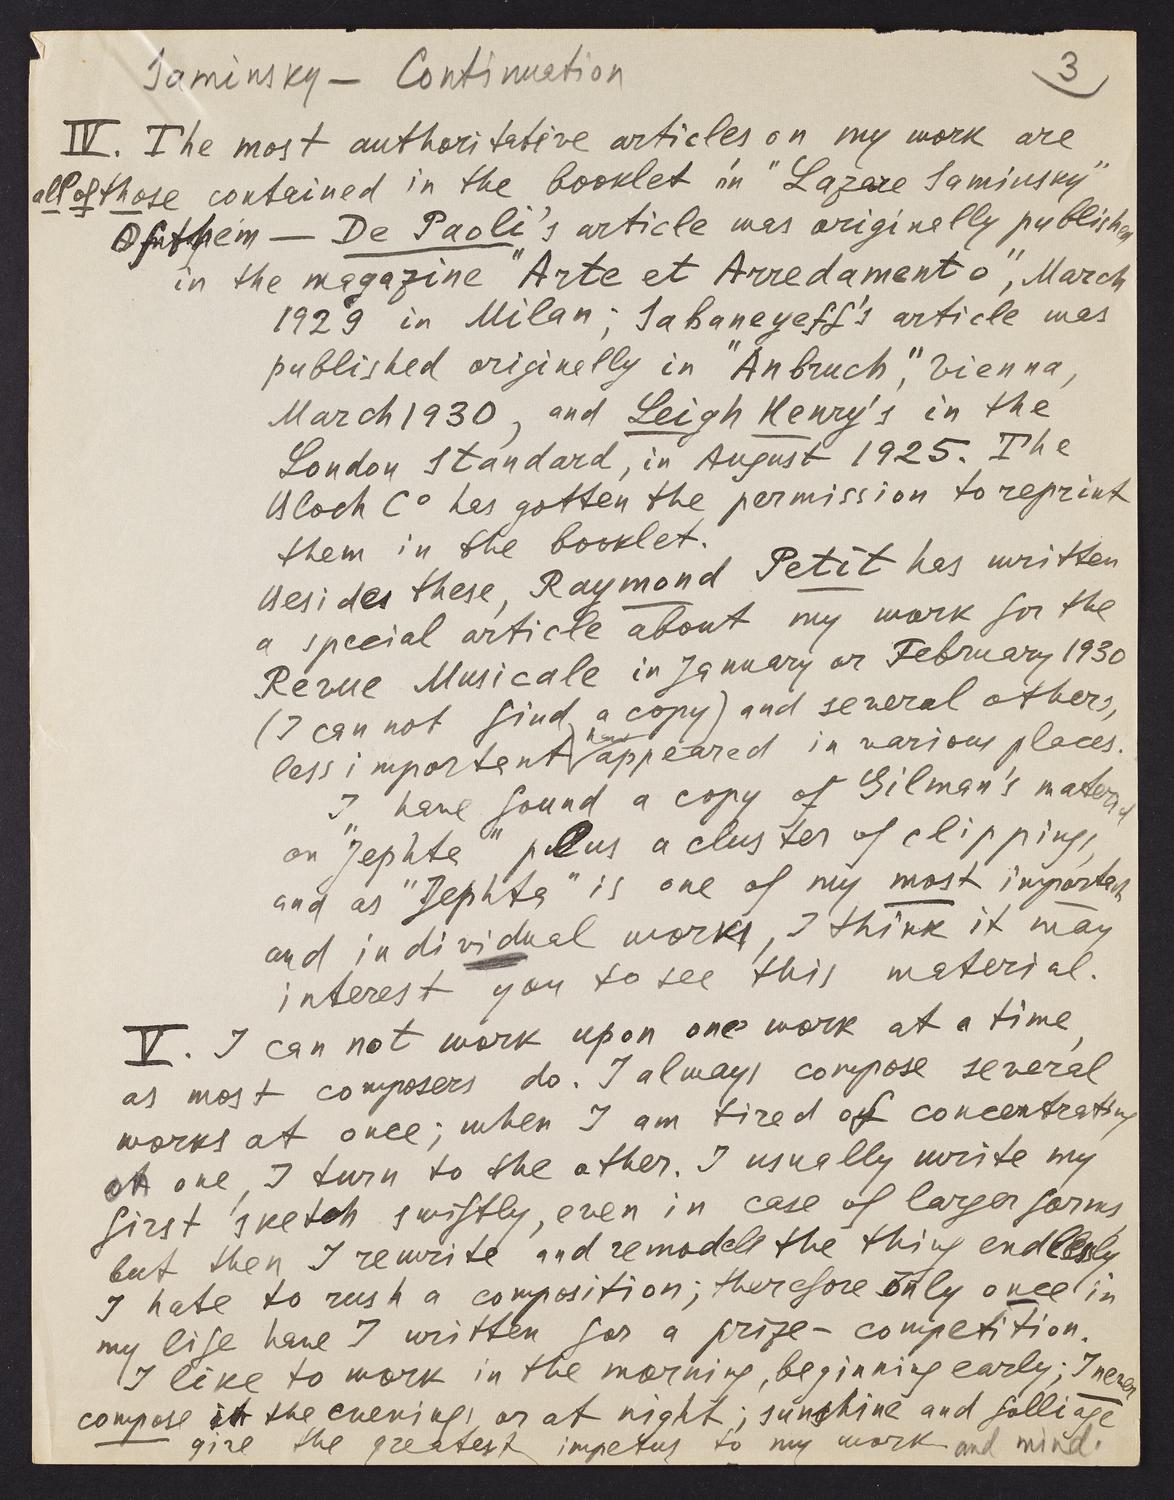 Saminsky — Continuation
3
IV. The most authoritative articles on my work are
all of those contained in the booklet in "Lazare Saminsky"
Of them — De Paoli's article was originelly publishen
in the magazine "Arte et Arredamento", March
1929 in Milan; Sabaneyeff's article was
published originelly in "Anbruch", Vienna,
March 1930, and Leigh Henry's in the
London Standard, in August 1925. The
Bloch Co has gotten the permission to reprint
them in the booklet.
Besides these, Raymond Petit has written
a special article about my work for the
Revue Musicale in January or February 1930
(I can not find a copy) and several others,
less important have appeared in various places.
I have found a copy of Gilman's material
on "Jephta" plus a cluster of clippings,
and as "Jephta" is one of my most important
and individual works, I think it may
interest you to see this material.
V. I can not work upon one work at a time,
as most composers do. I always compose several
works at once; when I am tired of concentrating
on one, I turn to the other. I usually write my
first sketch swiftly, even in case of larger forms,
but then I rewrite and remodell the thing endlessly
I hate to rush a composition; therefore only once in
my life have I written for a prize-competition.
I like to work in the morning, beginning early; I never
compose in the evenings or at night; sunshine and folliage
give the greatest impetus to my work and mind.